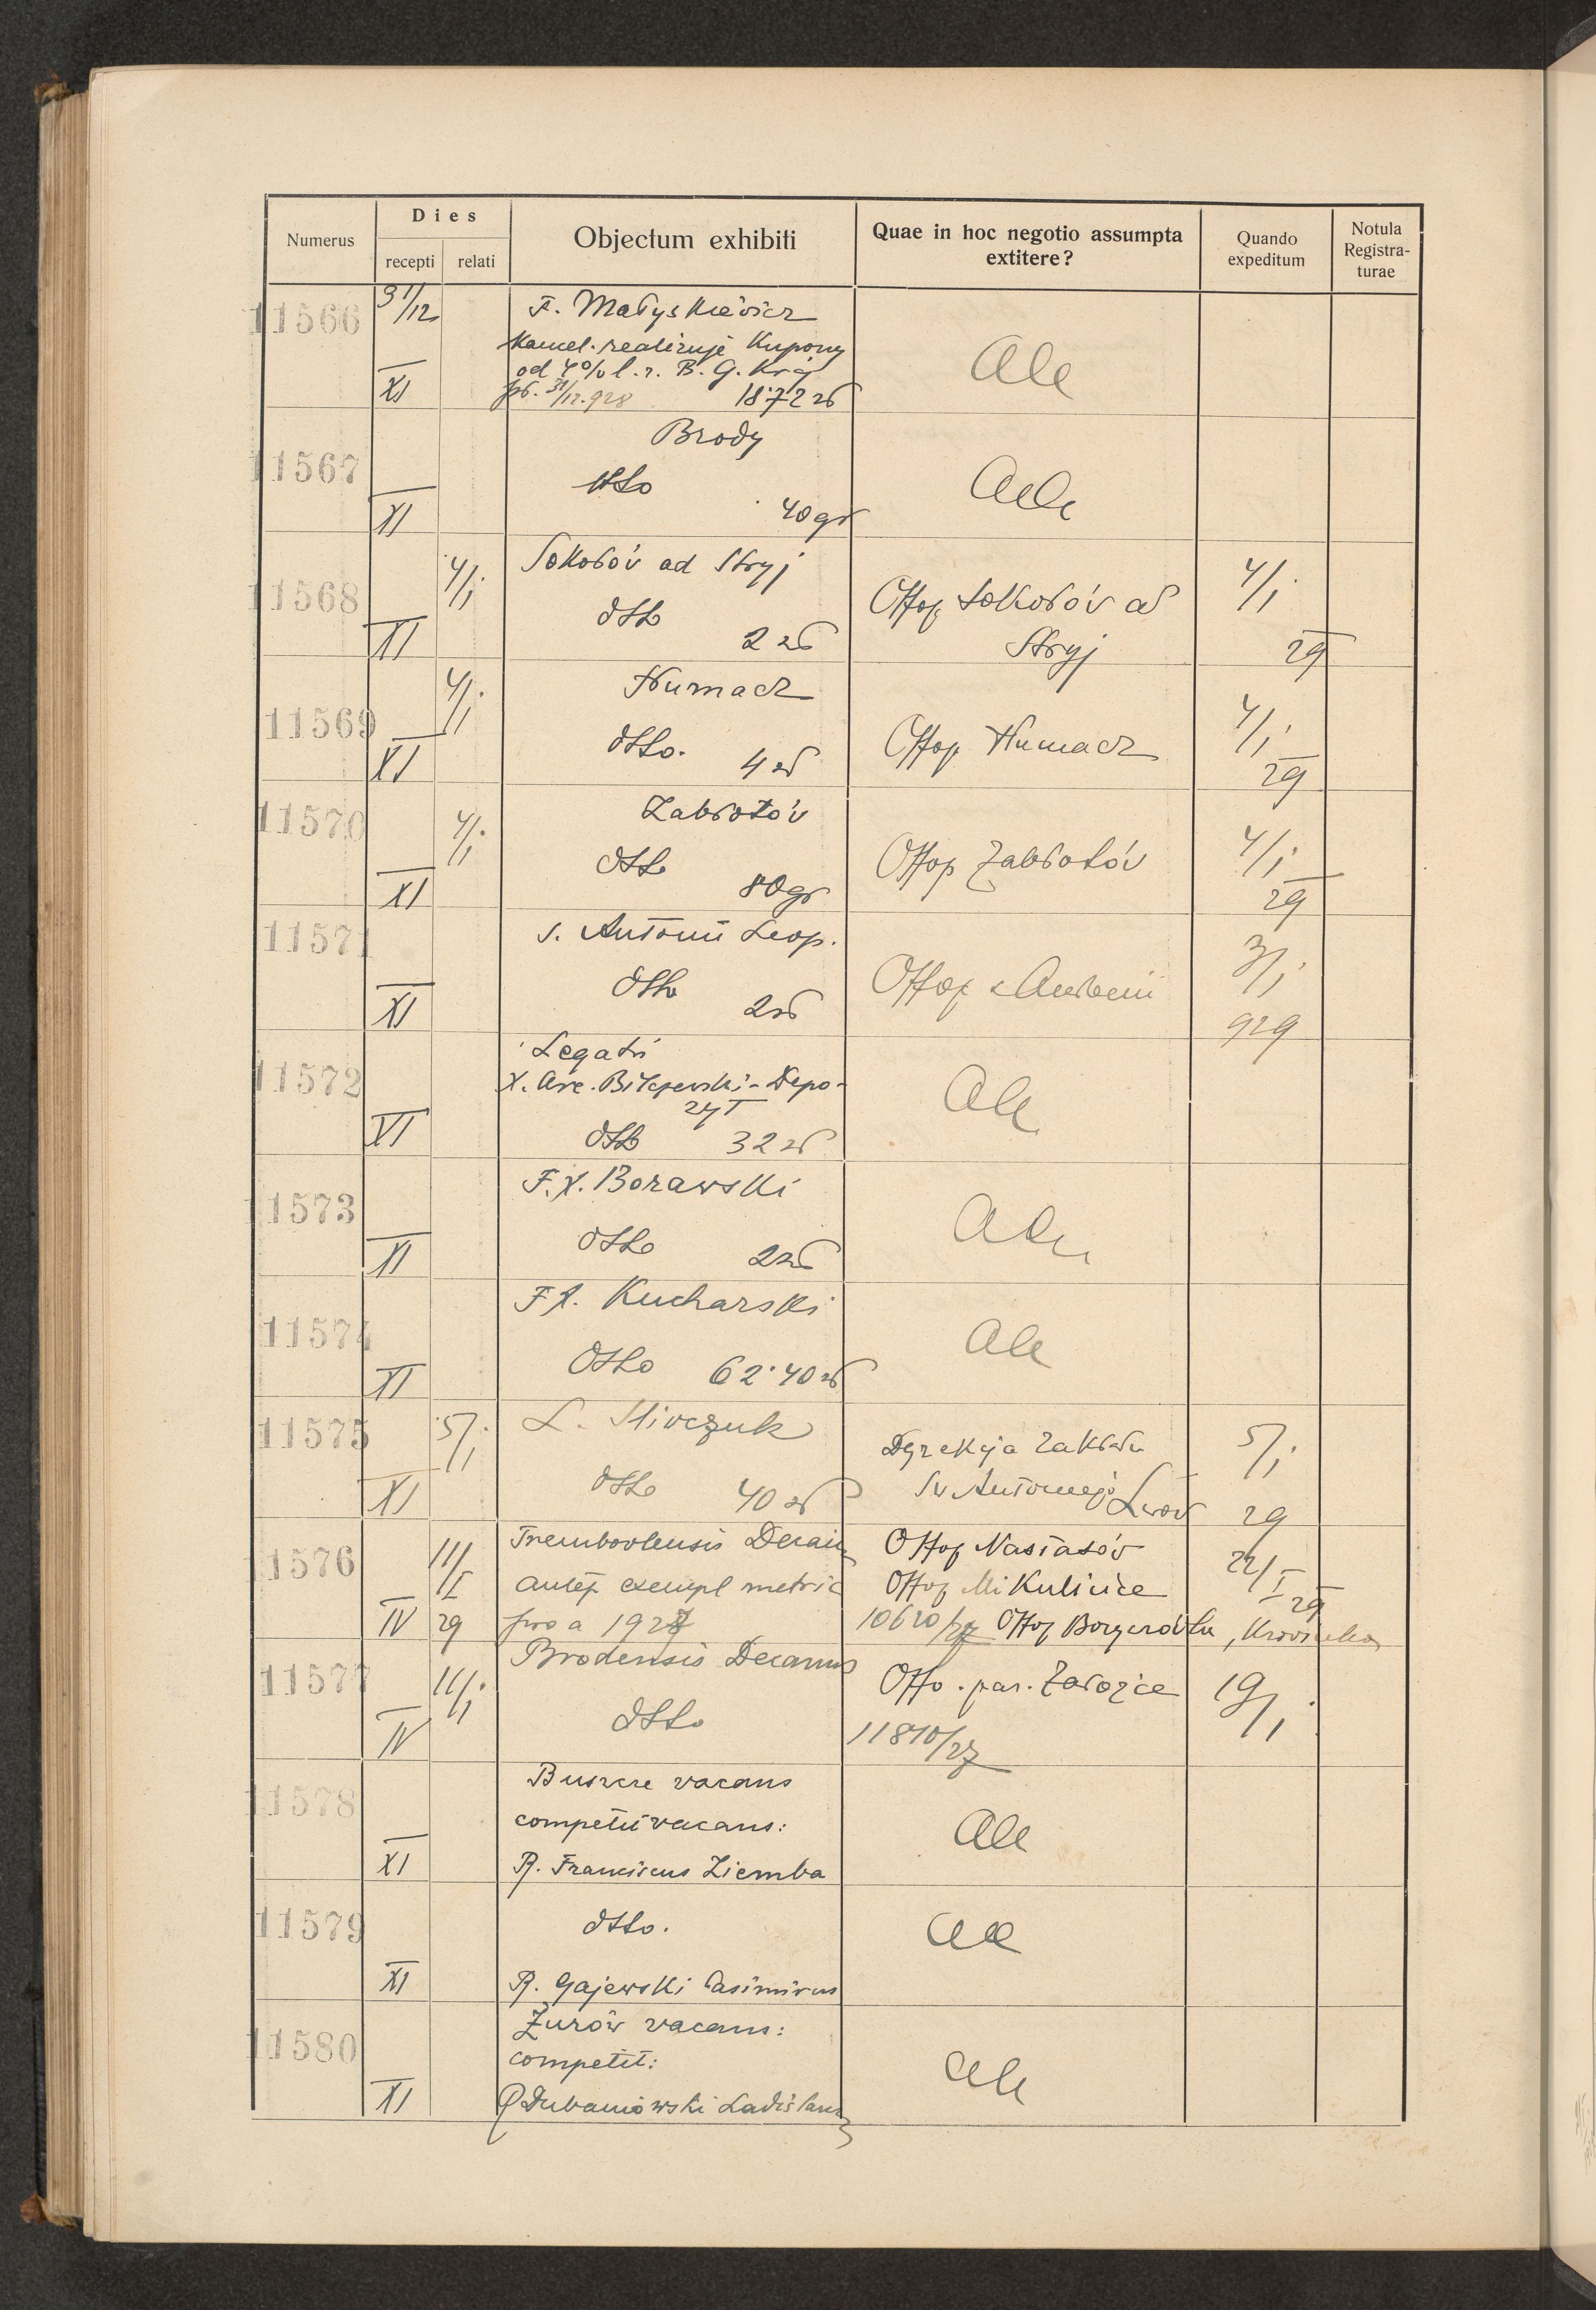 Numerus
Dies
recepti
relati
Objectum exhibiti
Quae in hoc negotio assumpta
extitere?
Quando
expeditum
Notula
Registra-
turae
11566
31/12
XI
F. Małyskiewicz
Kancel. realizuje Kupony
od 4% l. r. B. G. Kraj
31/12.928 18.72 zł
Ale
11567
XI
Brody
dtto
40 gr
11568
XI
4/I
Sokołów ad Stryj
dtto
2 zł
Offop Sokołów ad
Stryj
4/I
29
11569
XI
4/I
Tłumacz
dtto.
4 zł
Offop Tłumacz
4/I
29
11570
XI
4/I
Zabłotów
dtto
80 gr
Offop Zabłotów
4/I
29
11571
XI
s. Antonii Leop.
dtto
2 zł
Offop s Antonii
3/I
929
11572
XI
Legatu
X. Arc. Bilczewski - Depo-
zyt
dtto 32 zł
Ale
11573
XI
F. X. Borawski
dtto 2 zł
11574
XI
F X. Kucharski
dtto 62.40 zł
Ale
11575
XI
5/I
L. Sliwczuk
dtto 40 zł
Dyrekcja Zakładu
Św Antoniego Lwów
5/I
29
11576
IV
11/I
29
Trembovlensis Decan
exempl metric
pro a 1927
Offop Nastasów
Offop Mikulińce
10620/27 Offop Borzerówka, Krowinka
22/I
29
11577
IV
11/I
Brodensis Decanus
dtto
Offo. par. Załoźce
11810/27
19/I
11578
XI
Buszcze vacans
competit vacans:
R. Franciscus Ziemba
Ale
11579
XI
dtto.
R. Gajewski Casimirus
11580
XI
Żurów vacans:
competit:
R Dubaniowski Ladislaus
Ale